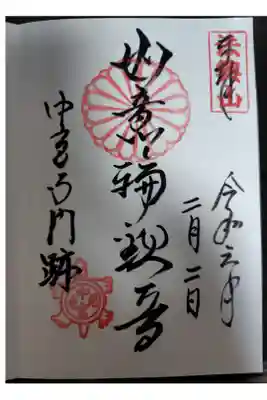 奉拝
令和六年
二月二日
如意輪観音
中宮寺門跡